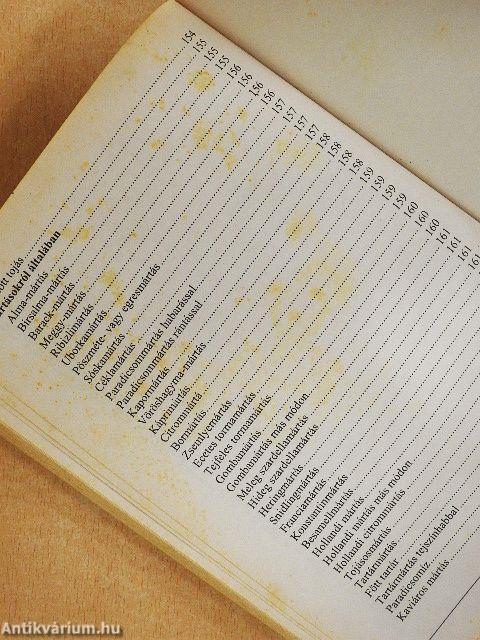 ott tojás 154
ártásokról általában 155
Alma-mártás 155
Birsalma-mártás 155
Barack-mártás 156
Meggy-mártás 156
Ribizlimártás 156
Uborkamártás 156
Pöszméte- vagy egresmártás 157
Sóskamártás 157
Céklamártás 157
Paradicsommártás habarással 158
Paradicsommártás rántással 158
Kapormártás 158
Vöröshagyma-mártás 158
Káprimártás 159
Citrommártá 159
Bormártás 159
Zsemlyemártás 160
Ecetes tormamártás 160
Tejfeles tormamártás 160
Gombamártás 161
Gombamártás más módon 161
Meleg szardellamártás 161
Hideg szardellamártás
Heringmártás
Snidlingmártás
Franciamártás
Konstantinmártás
Besamelmártás
Hollandi mártás
Hollandi mártás más módon
Hollandi citrommártás
Tojásosmártás
Tartármártás
Főtt tartár
Tartármártás tejszínhabbal
Paradicsomíz
Kaviáros mártás
Antikvárium.hu